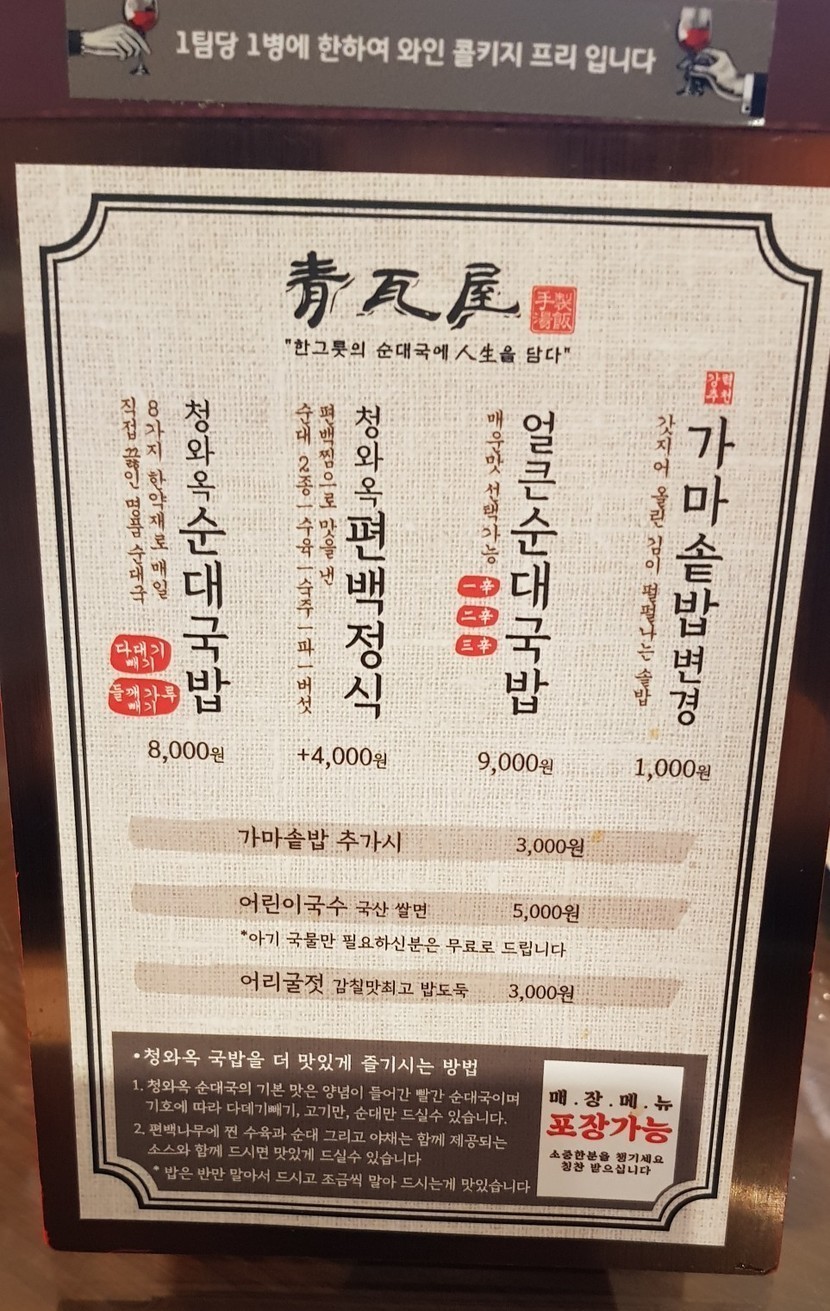 1팀당 1병에 한하여 와인 콜키지 프리 입니다
青瓦屋
手製
湯飯
"한그릇의 순대국에 人生을 담다"
청와옥순대국밥
8가지 한약재로 매일
직접 끓인 명품 순대국
다대기
빼기
들깨가루
빼기
8,000원
청와옥편백정식
편백찜으로 맛을 낸
순대 2종ㅣ수육ㅣ숙주ㅣ파ㅣ버섯
+4,000원
얼큰순대국밥
매운맛 선택가능
一辛
二辛
三辛
9,000원
강력
추천
가마솥밥변경
갓지어 올린 김이 펄펄나는 솥밥
1,000원
가마솥밥 추가시 3,000원
어린이국수 국산 쌀면 5,000원
*아기 국물만 필요하신분은 무료로 드립니다
어리굴젓 감칠맛최고 밥도둑 3,000원
•청와옥 국밥을 더 맛있게 즐기시는 방법
1. 청와옥 순대국의 기본 맛은 양념이 들어간 빨간 순대국이며
기호에 따라 다데기빼기, 고기만, 순대만 드실수 있습니다.
2. 편백나무에 찐 수육과 순대 그리고 야채는 함께 제공되는
소스와 함께 드시면 맛있게 드실수 있습니다
* 밥은 반만 말아서 드시고 조금씩 말아 드시는게 맛있습니다
매.장.메.뉴
포장가능
소중한분을 챙기세요
칭찬 받으십니다